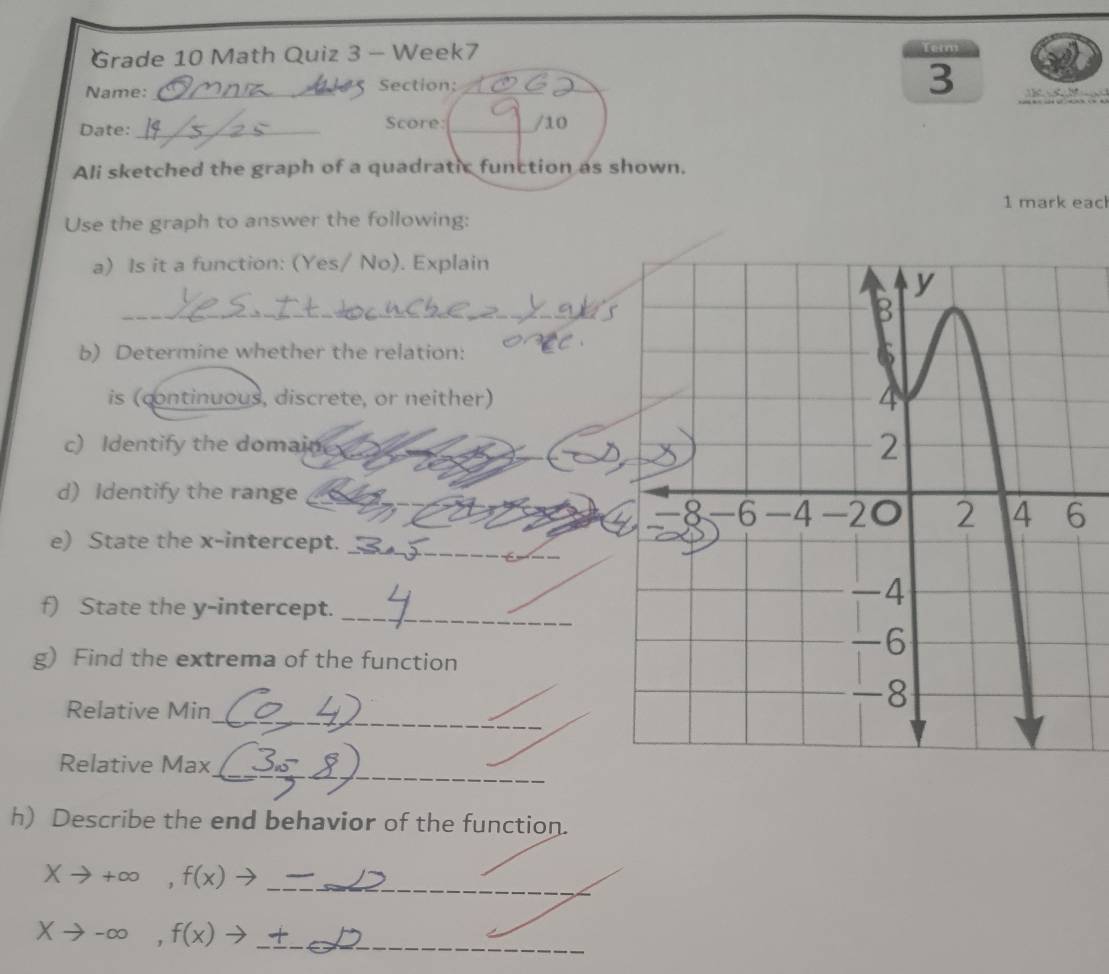 Grade 10 Math Quiz 3 - Week7
Term
3
Name: Omnia Section: 1062
Date: 19/5/25 Score: 9 /10
Ali sketched the graph of a quadratic function as shown.
1 mark each
Use the graph to answer the following:
a) Is it a function: (Yes/ No). Explain
Yes. It touches y axis
once.
b) Determine whether the relation:
is (continuous, discrete, or neither)
c) Identify the domain (-∞, ∞)
d) Identify the range
e) State the x-intercept. 3.5
f) State the y-intercept. 4
g) Find the extrema of the function
Relative Min (0, 4)
Relative Max (3.5, 8)
h) Describe the end behavior of the function.
X → +∞ , f(x) → -∞
X → -∞ , f(x) → +∞
y
8
6
4
2
-8 -6 -4 -2 O 2 4 6
-4
-6
-8